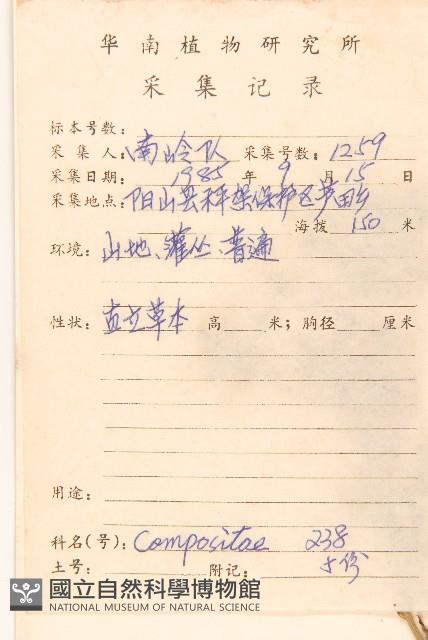 华南植物研究所
采集记录
标本号数:
采集人: 南岭队 采集号数: 1259
采集日期: 1985 年 9 月 15 日
采集地点: 阳山县秤架保护区芦田乡
海拨 150 米
环境: 山地、灌丛、普遍
性状: 直立草本 高 米; 胸径 厘米
用途:
科名(号): Compositae 238
土号: 附记: 5份
國立自然科學博物館
NATIONAL MUSEUM OF NATURAL SCIENCE